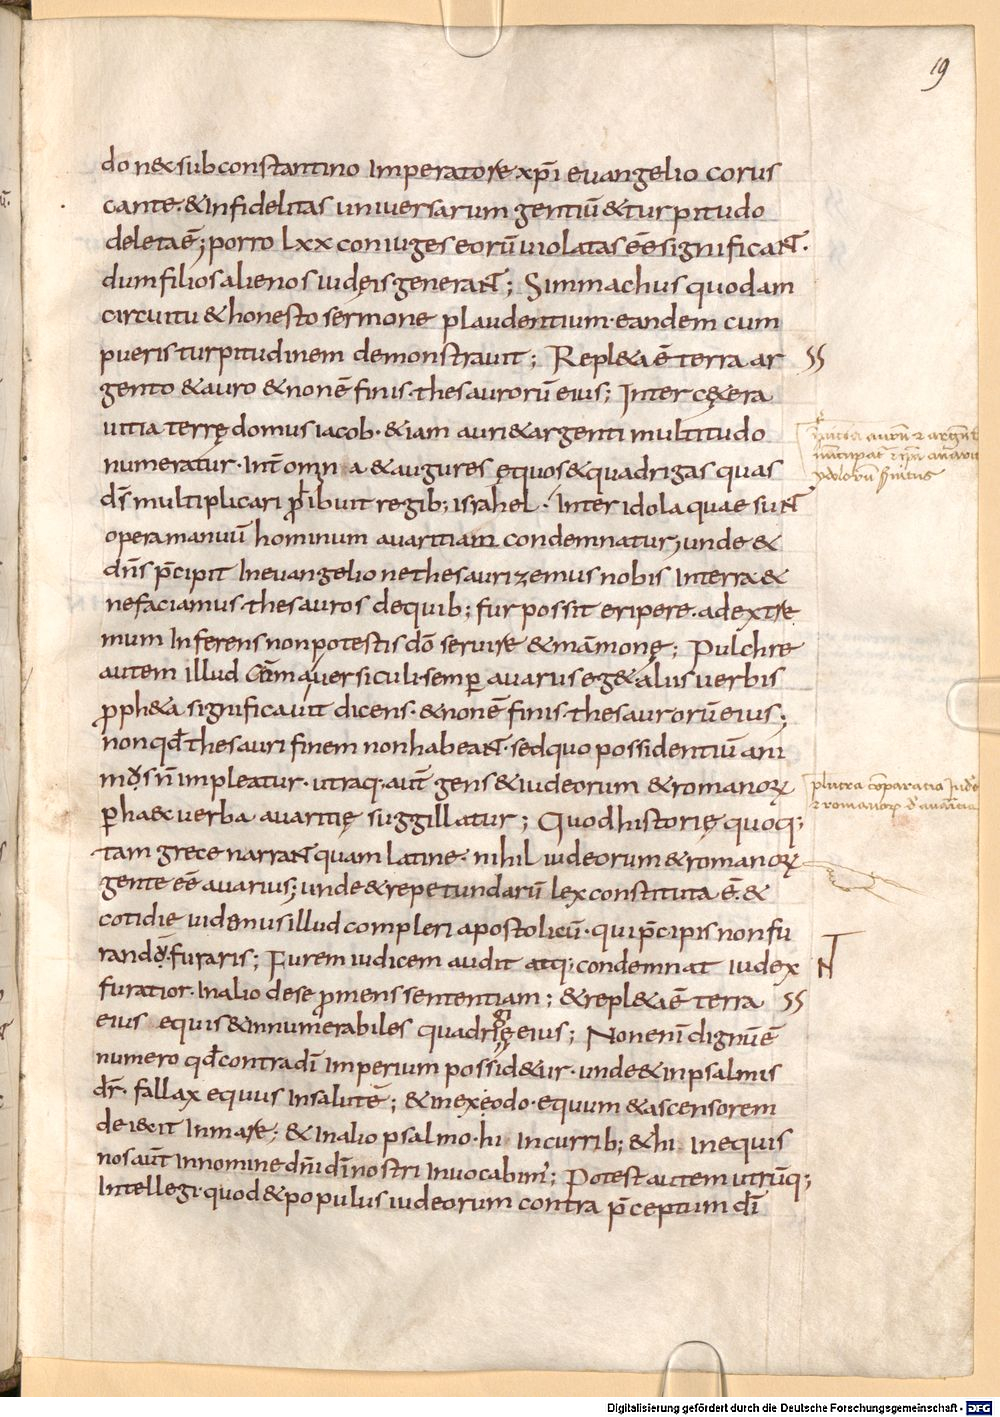 19
do n&subconstantino Imperatore xp̄i euangelio corus
cante·&Infidelitas uniuersarum gentiū&turpitudo
deletaē; porro lxx coniuges eorū uiolatas eē significaNT·
dum filios alienos iudęis·generaNT; Simmachus quodam
circuitu & honesto sermone plaudentium·eandem cum
pueris turpitudinem demonstrauit; Repl&a ē terra ar
gento & auro & nonē finis·thesaurorū eius; Inter cę&era
uitia terrę domus iacob·&iam auri&argenti multitudo
numeratur·Int̄ omin a & augures ęquos&quadrigas quas
d̄s multiplicari p̄hibuit regib; israhel·Inter idola quae suNT
opera manuū hominum auaritiam condemnatur; unde &
dn̄s p̄cipit In euangelio ne thesaurizemus nobis Interra &
ne faciamus·thesauros de quib; fur possit eripere·ad extre
mum Inferens non potestis dō seruire & māmonę; Pulchre
autem illud
uersiculi·semp̄ auarus eg& alius uerbis
p̱ph&a significauit dicens·& nonē finis·thesaurorū eius;
non qđ thesauri finem non habeaNT·sed quo possidentiū ani
mꝰ s n̄ impleatur·utraq· aūt gens & iudeorum & romanoꝝ
p̱ ha&c uerba auaritię suggillatur; Quod historię quoq;
tam grece narraNT quam latine·nihil iudeorum & romanoꝝ
gente eē auarius; unde & repetundarū lex constituta ē·&
cotidię uidemus illud compleri apostolicū·qui p̄cipis non fu
randū·furaris; Furem iudicem audit atq; condemnat iudex
furatior·In alio de se p̱mens sententiam; & repl&a ē terra
eius equis & innumerabiles quadrigę eius; Non enī dignū ē
numero qđ contra dī Imperium possid&ur·unde & in psalmis
dr̄·fallax equus In salutē; & in exęodo·equum & ascensorem
deiecit In mare; & In alio psalmo·hi Incurrib; & hi In equis
nos aūt In nomine dn̄i dī nostri Inuocabim᾽; Potest autem utrūq;
Intellegi·quod & populus iudeorum contra p̄ceptum dī
Digitalisierung gefördert durch die Deutsche Forschungsgemeinschaft - DFG